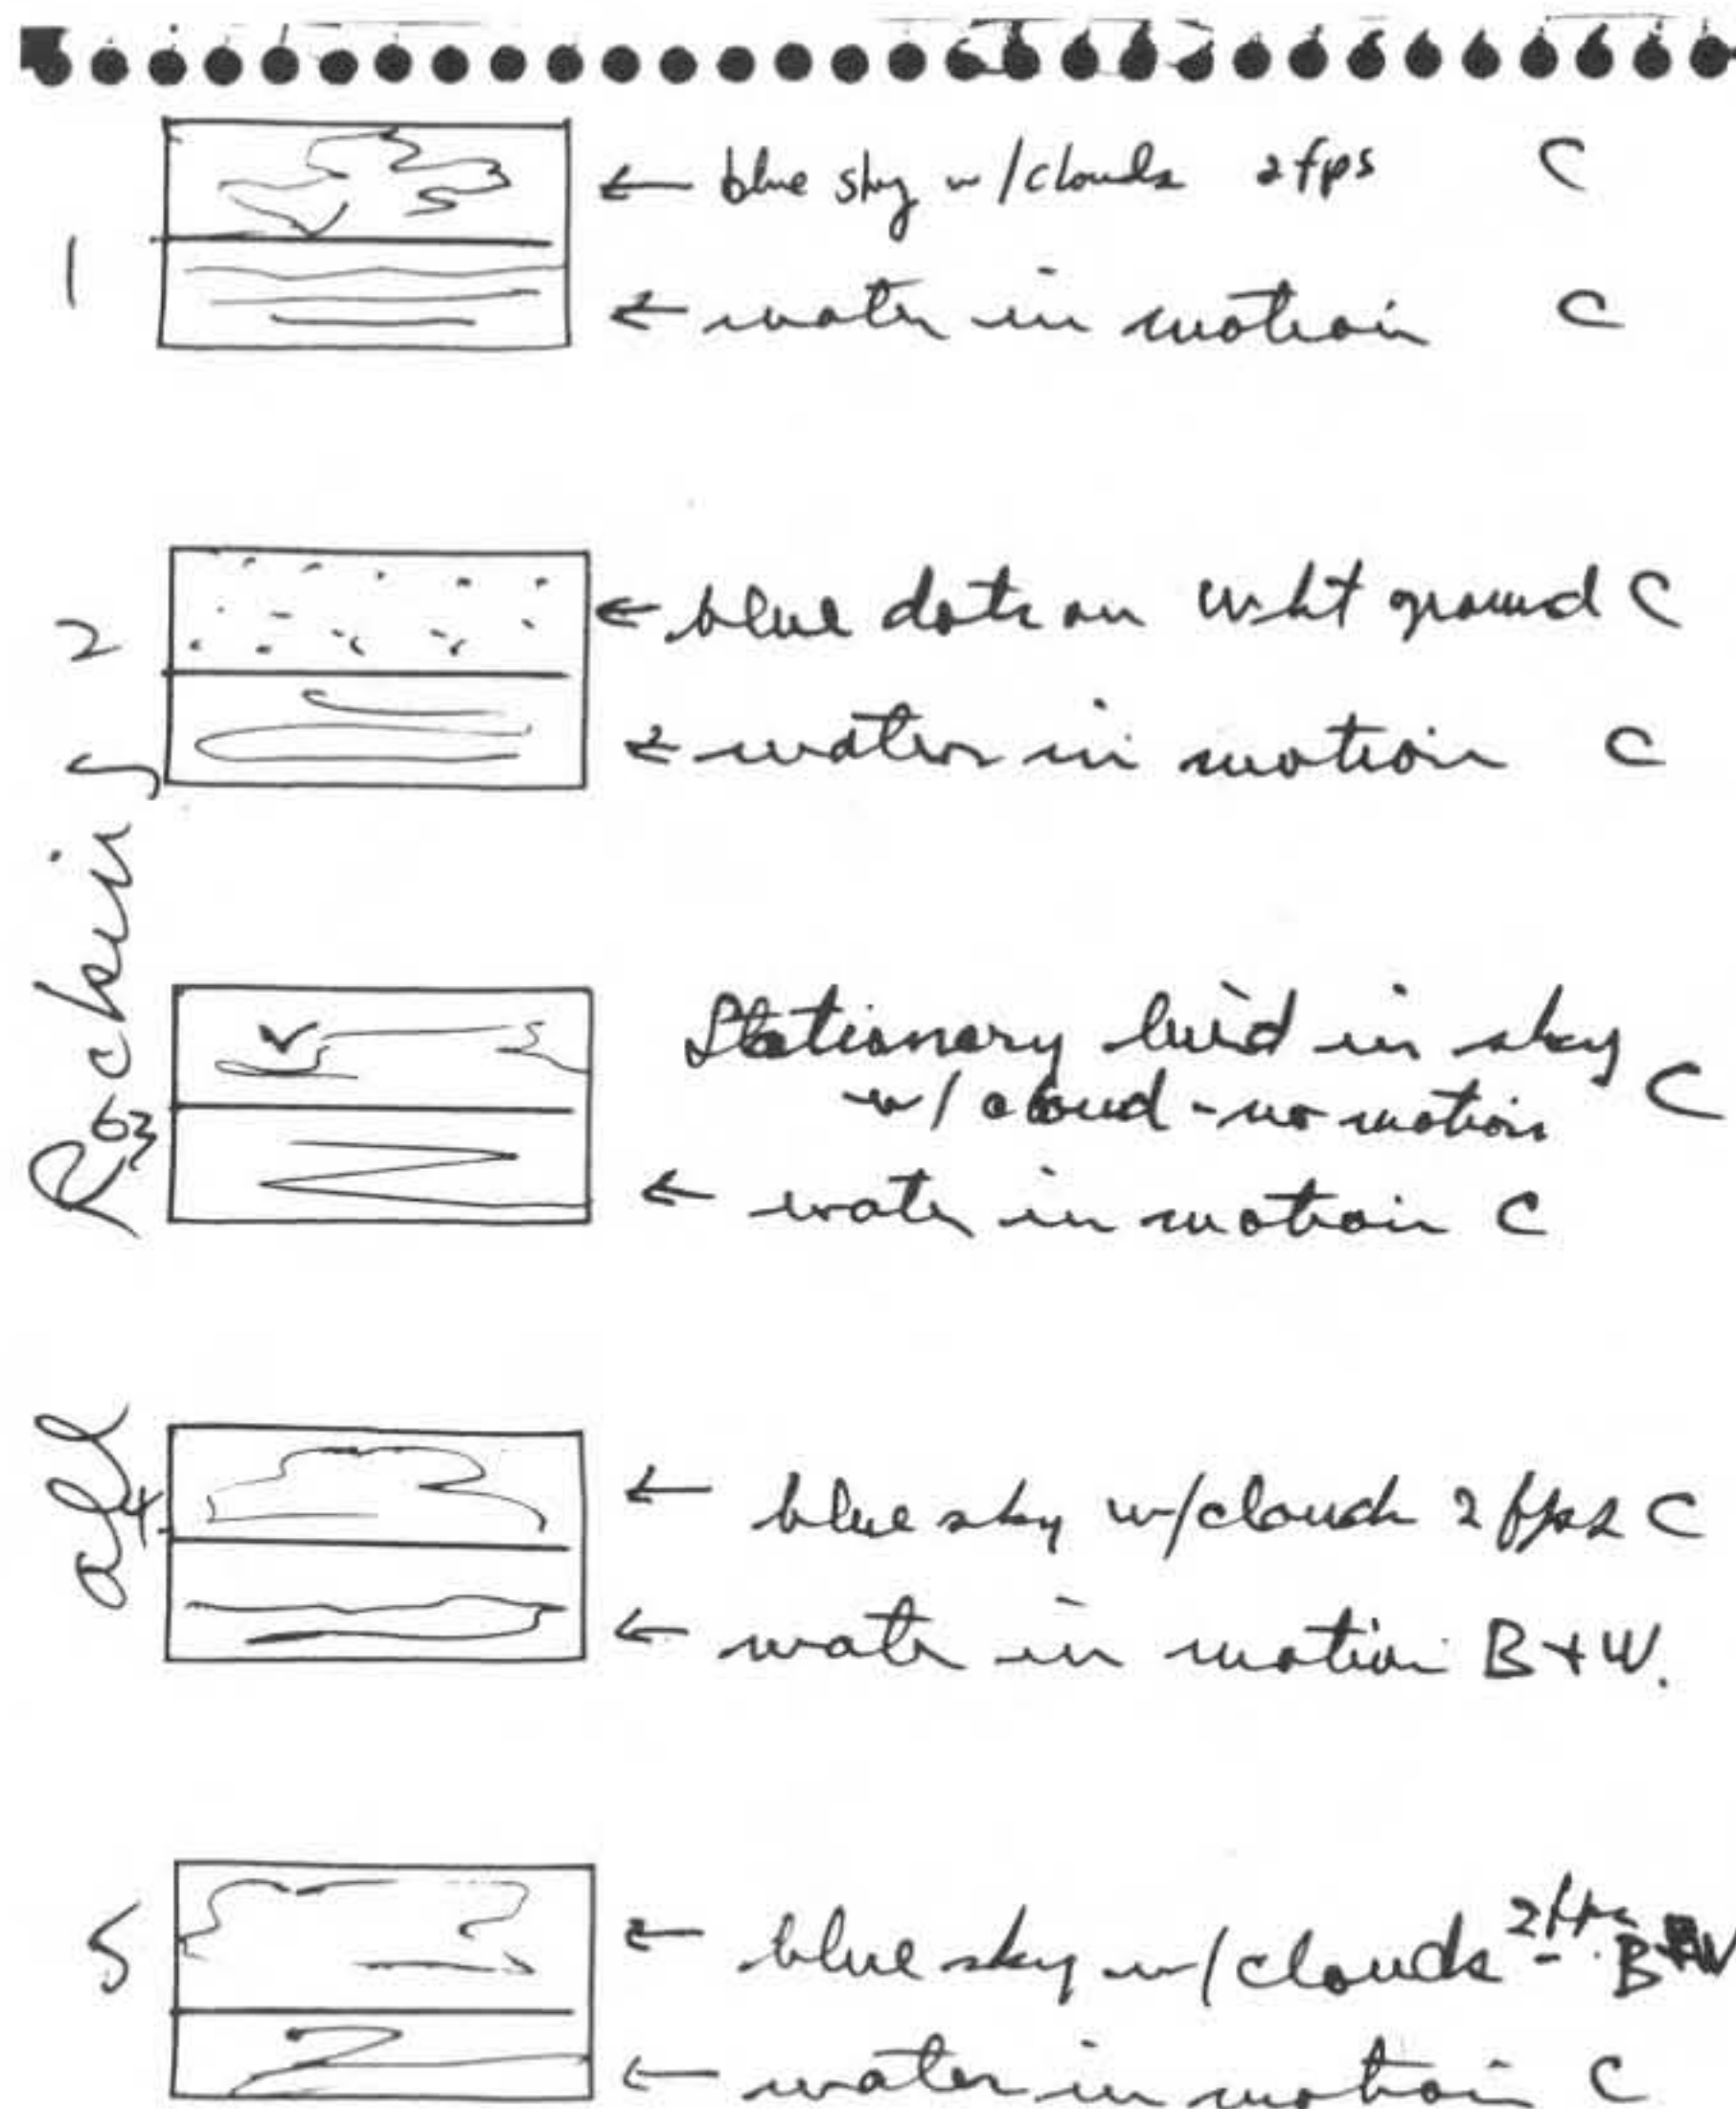 1
← blue sky w/clouds 2 fps C
← water in motion C
2
← blue dots on wht ground C
← water in motion C
3
Stationary bird in sky
w/ cloud - no motion C
← water in motion C
4
← blue sky w/clouds 2 fps C
← water in motion B+W.
5
← blue sky w/clouds 2 fps B+W
← water in motion C
all Rocking